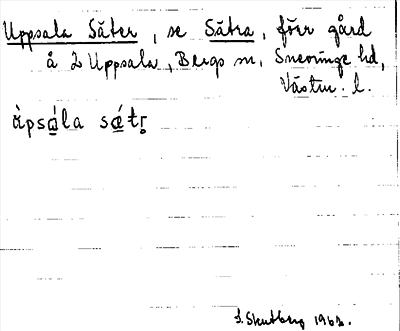 Uppsala Säter, se Sätra, förr gård
å L Uppsala, Bergs sn, Snevringe hd,
Västm. l.
àpsa̱la sǽ̱tr̥
S. Skutberg 1963.